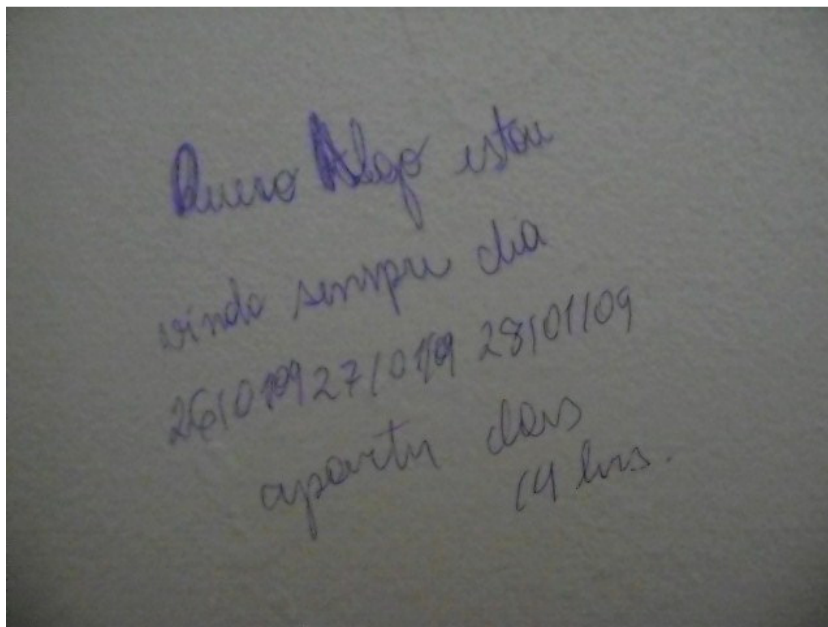 Quero Algo estou
vindo sempre dia
26/01/09 27/01/09 28/01/09
apartir das
14 hrs.